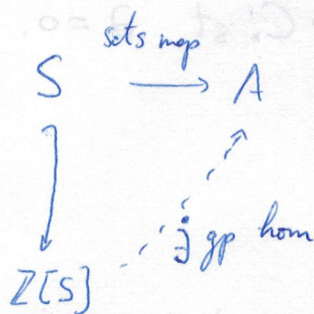 sets map
S → A
∃ gp hom
Z[S]